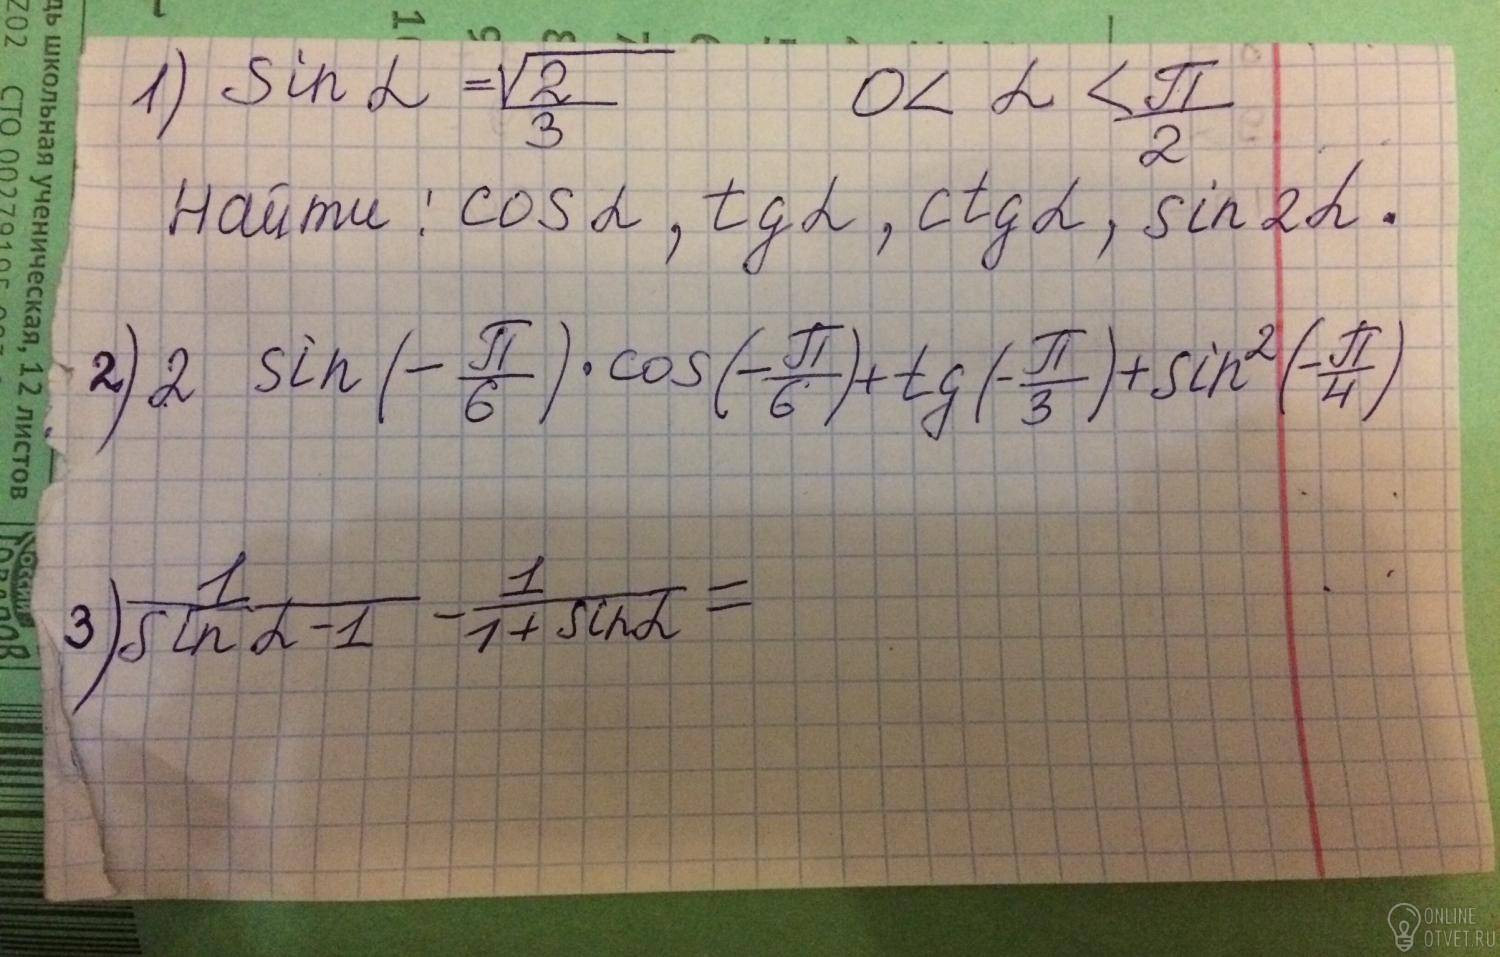 1) sin α = √2/3 0 < α < π/2
Найти: cos α, tg α, ctg α, sin 2α.
2) 2 sin(-π/6) · cos(-π/6) + tg(-π/3) + sin²(-π/4)
3) 1/(sin α - 1) - 1/(1 + sin α) =
школьная ученическая, 12 листов
ONLINE
OTVET.RU